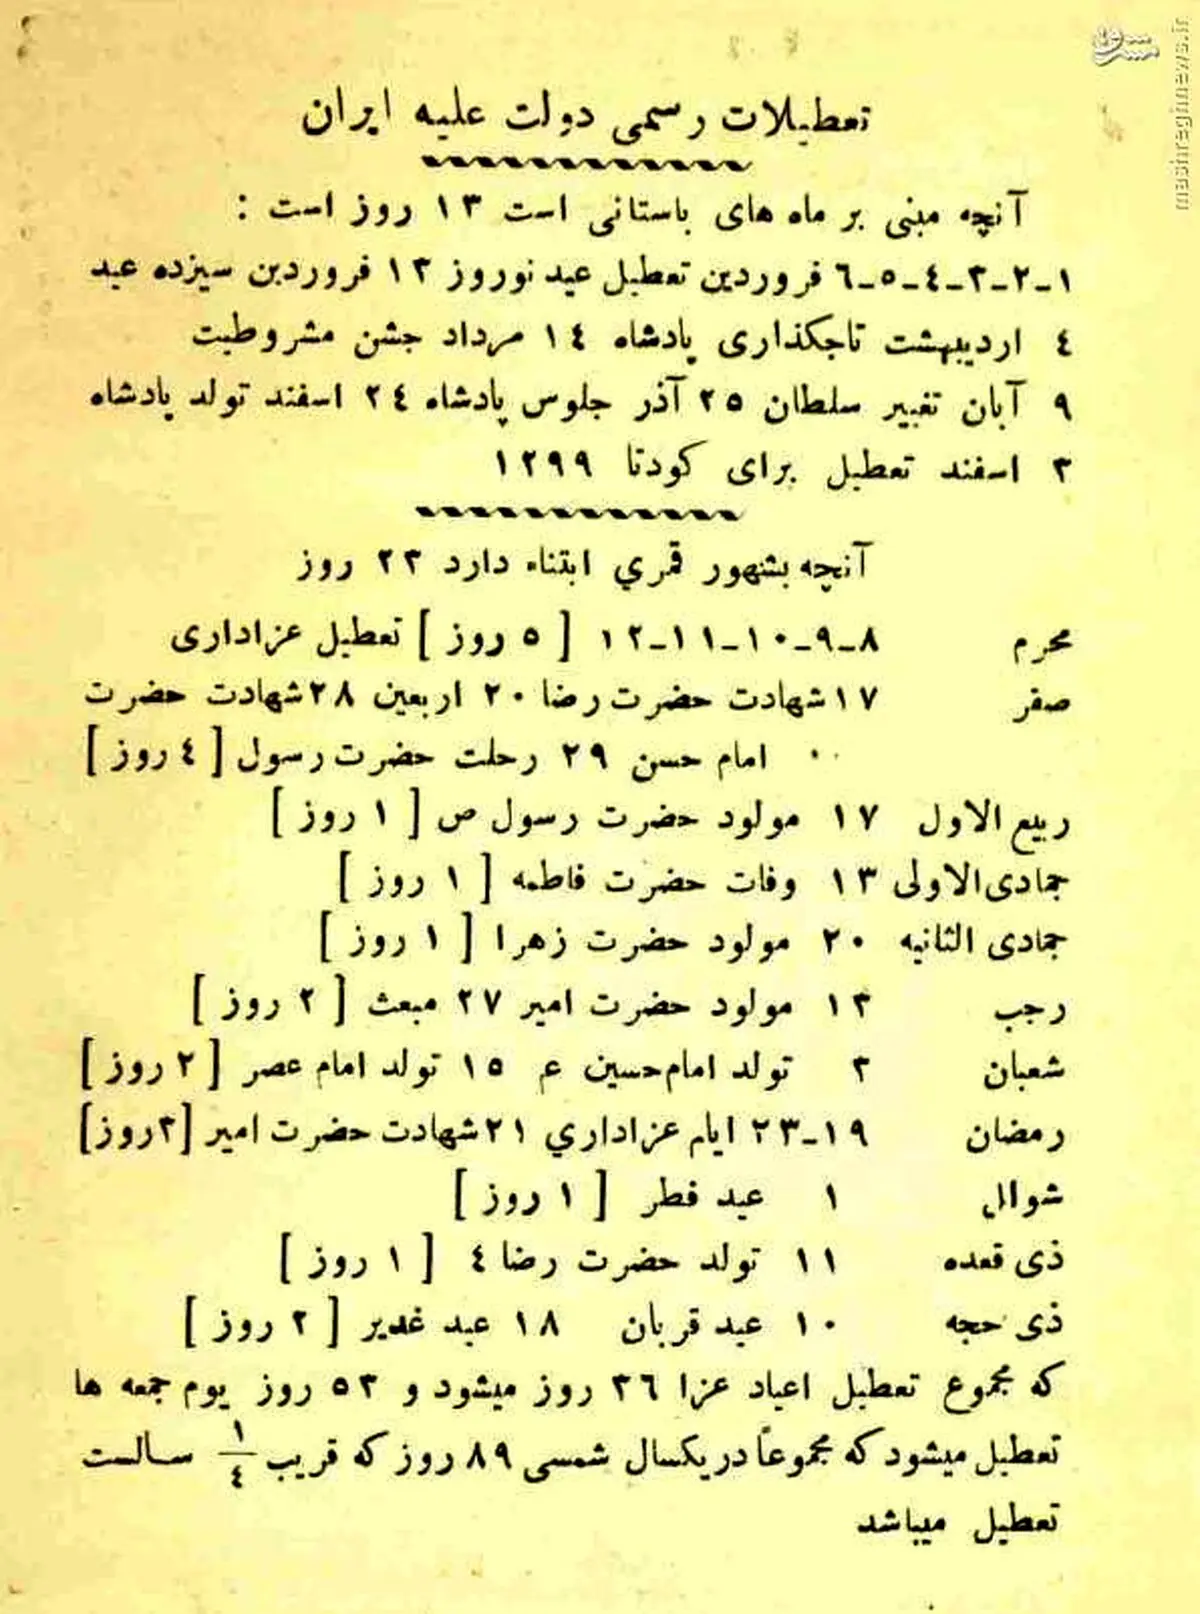 تعطیلات رسمی دولت علیه ایران
آنچه مبنی بر ماه های باستانی است ۱۳ روز است :
۱-۲-۳-٤-٥-٦ فروردین تعطیل عید نوروز ۱۳ فروردین سیزده عید
٤ اردیبهشت تاجگذاری پادشاه ۱٤ مرداد جشن مشروطیت
۹ آبان تغییر سلطان ۲٥ آذر جلوس پادشاه ۲٤ اسفند تولد پادشاه
۳ اسفند تعطیل برای کودتا ۱۲۹۹
آنچه بشهور قمري ابتناء دارد ۲۳ روز
محرم ۸-۹-۱۰-۱۱-۱۲ [ ٥ روز ] تعطیل عزاداری
صفر ۱۷ شهادت حضرت رضا ۲۰ اربعین ۲۸ شهادت حضرت
امام حسن ۲۹ رحلت حضرت رسول [ ٤ روز ]
ربیع الاول ۱۷ مولود حضرت رسول ص [ ۱ روز ]
جمادی الاولی ۱۳ وفات حضرت فاطمه [ ۱ روز ]
جمادی الثانیه ۲۰ مولود حضرت زهرا [ ۱ روز ]
رجب ۱۳ مولود حضرت امیر ۲۷ مبعث [ ۲ روز ]
شعبان ۳ تولد امام حسین ع ۱٥ تولد امام عصر [ ۲ روز ]
رمضان ۱۹-۲۳ ایام عزاداري ۲۱ شهادت حضرت امیر [۳روز]
شوال ۱ عید فطر [ ۱ روز ]
ذی قعده ۱۱ تولد حضرت رضا ٤ [ ۱ روز ]
ذی حجه ۱۰ عید قربان ۱۸ عید غدیر [ ۲ روز ]
که مجموع تعطیل اعیاد عزا ۳٦ روز میشود و ٥۳ روز یوم جمعه ها
تعطیل میشود که مجموعاً در یکسال شمسی ۸۹ روز که قریب ۱/٤ سالست
تعطیل میباشد
مشرق
mashreghnews.ir